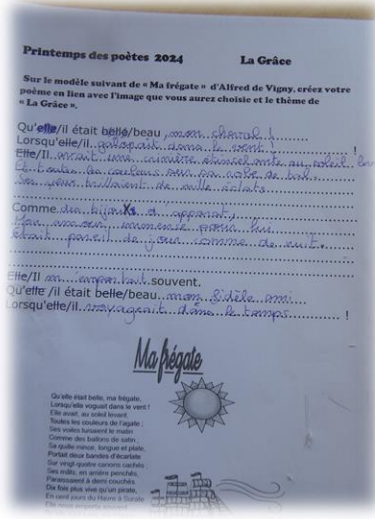 Printemps des poètes 2024 La Grâce
Sur le modèle suivant de « Ma frégate » d'Alfred de Vigny, créez votre
poème en lien avec l'image que vous aurez choisie et le thème de
« La Grâce ».
Qu'elle/il était belle/beau, mon cheval !
Lorsqu'elle/il galopait dans le vent ! !
Elle/Il avait une crinière étincelante au soleil
Et toutes les couleurs sur sa robe de bal.
Ses yeux brillaient de mille éclats
Comme des bijoux d'apparat,
Mon amour immense pour lui
était pareil de jour comme de nuit.
Elle/Il m'emportait souvent.
Qu'elle /il était belle/beau mon fidèle ami
Lorsqu'elle/il voyageait dans le temps !
Ma frégate
Qu'elle était belle, ma frégate,
Lorsqu'elle voguait dans le vent !
Elle avait, au soleil levant,
Toutes les couleurs de l'agate ;
Ses voiles luisaient le matin
Comme des ballons de satin ;
Sa quille mince, longue et plate,
Portait deux bandes d'écarlate
Sur vingt-quatre canons cachés ;
Ses mâts, en arrière penchés,
Paraissaient à demi couchés.
Dix fois plus vive qu'un pirate,
En cent jours du Havre à Surate
Elle nous emporta souvent.